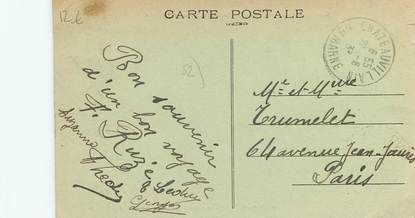 12.€
CARTE POSTALE
CHATEAUVILLAIN
Hte MARNE
52
Bon souvenir
d'un bon voyage
F. Ruzé
Suzanne
Mr et Mme
Trumelet
64 avenue Jean-Jaurès
Paris